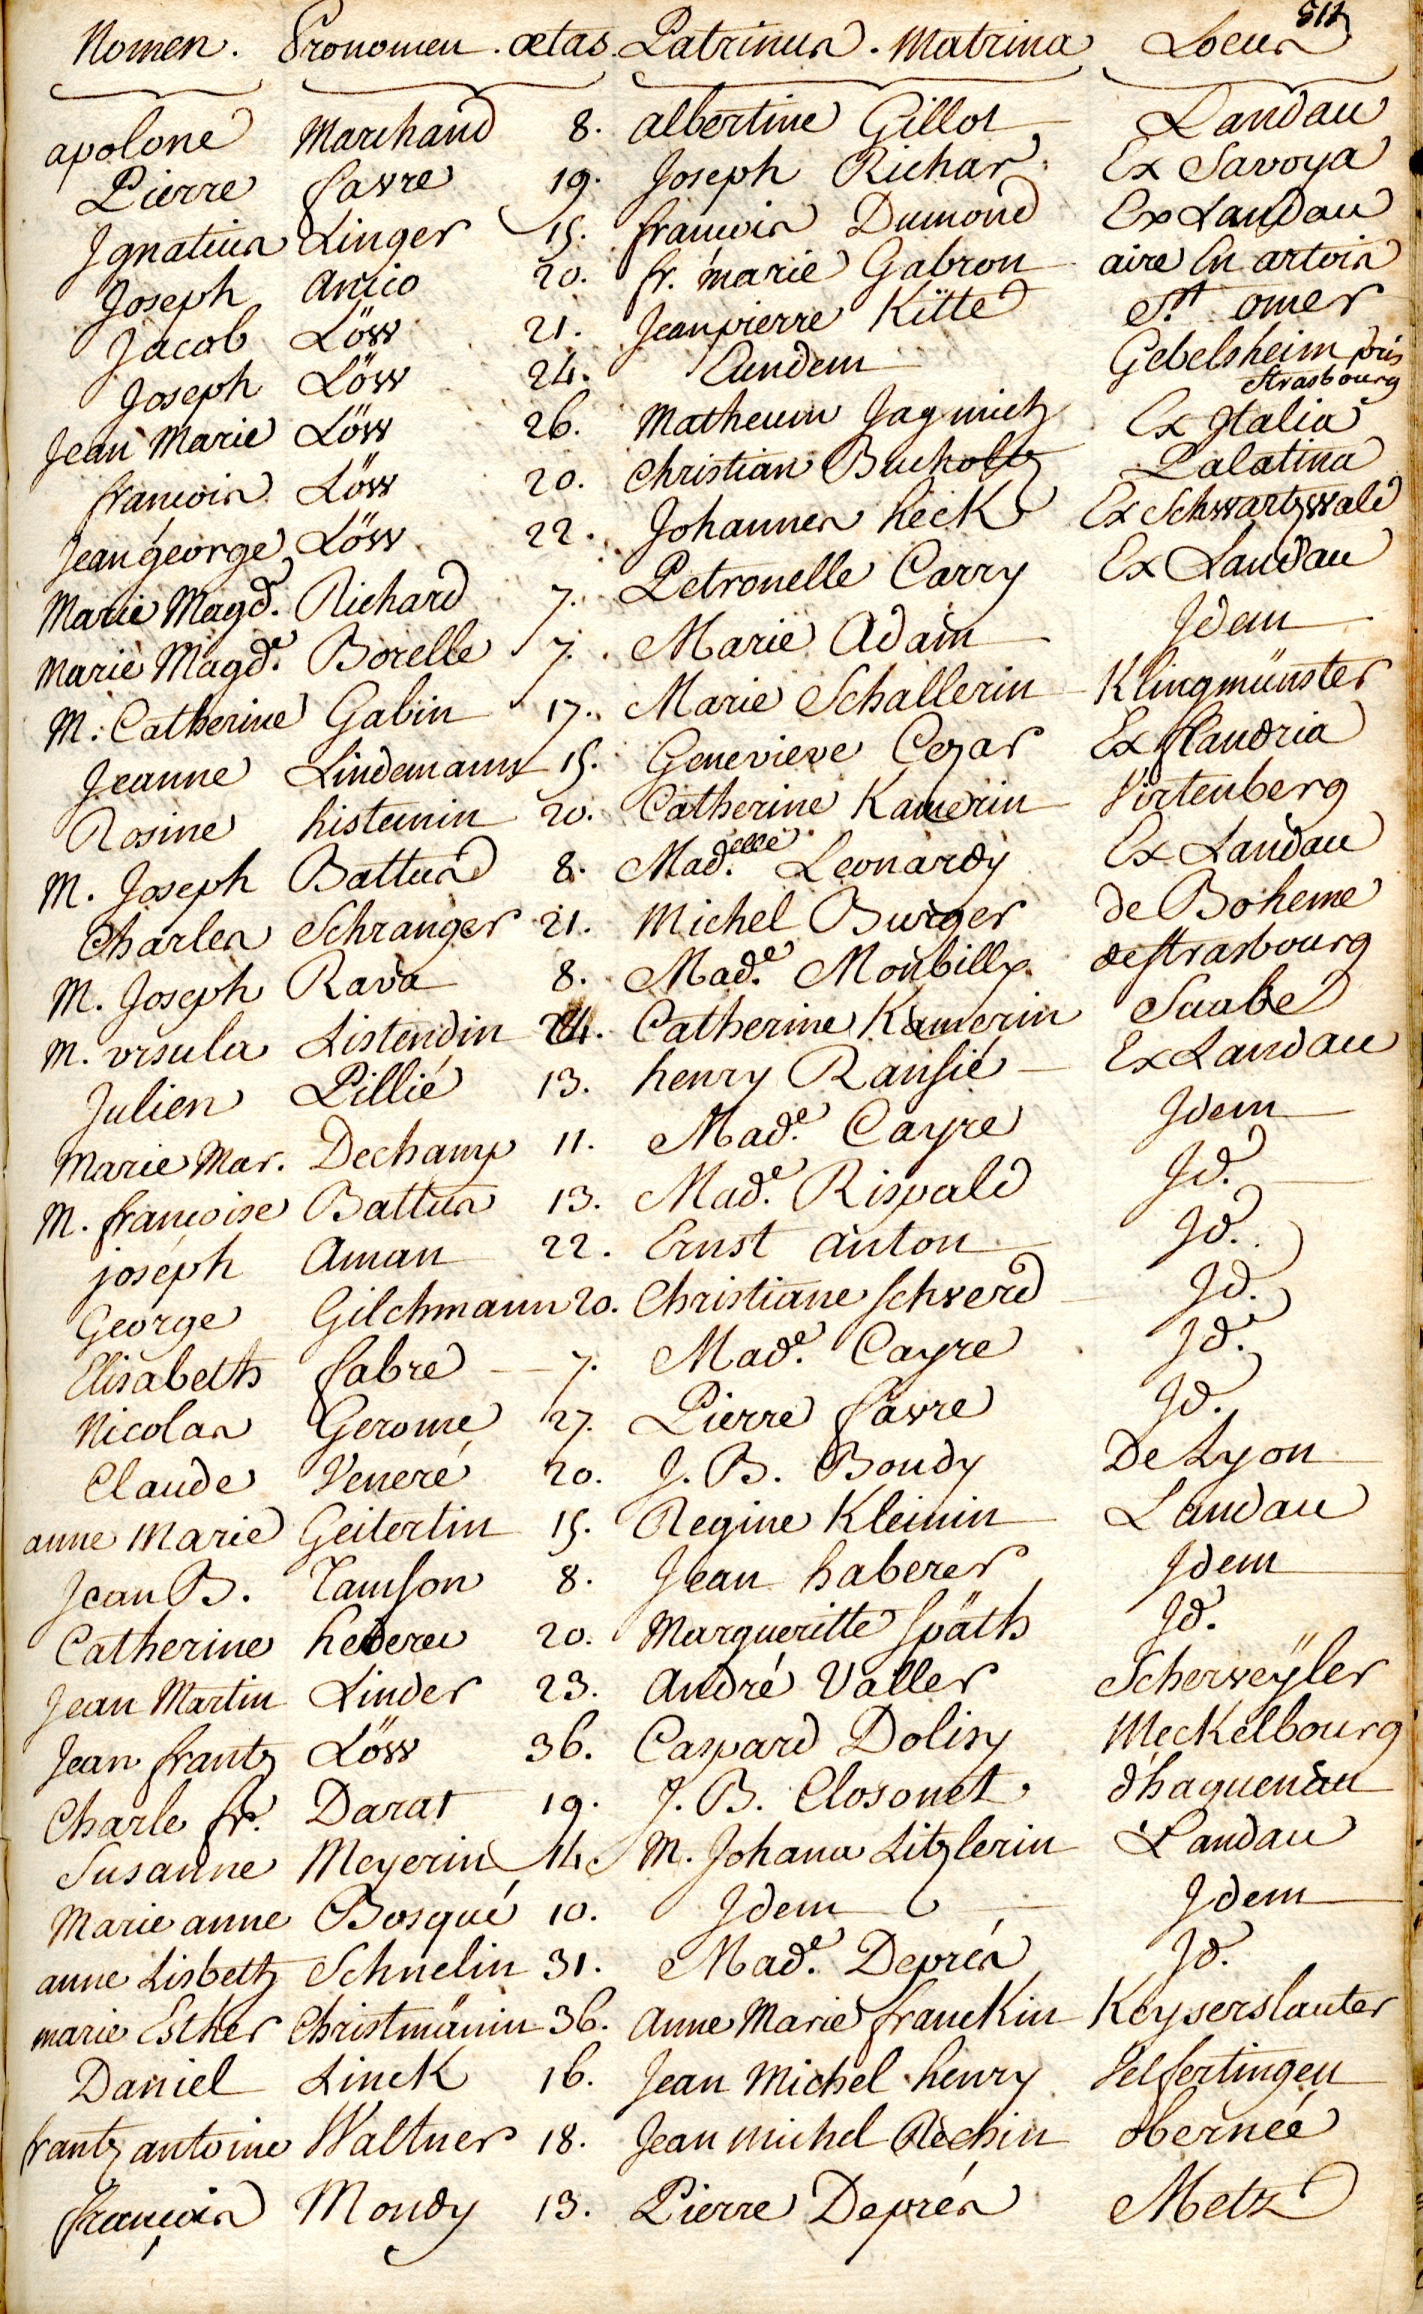 512
Nomen. Pronomen. ætas. Patrinus. Matrina Locus
apolone Marchand 8. albertine Gillot Landau
Pierre favre 19. Joseph Richar Ex Savoya
Ignatius Linger 15. francois Dumond Ex Landau
Joseph Anico 20. fr. marie Gabron aire En artois
Jacob Löw 21. Jeanpierre Kitte St omer
Joseph Löw 24. Eundem Gebelsheim pris Strasbourg
Jean Marie Löw 26. Matheum Jagmich Ex Italia
francois Löw 20. Christian Bucholtz Palatina
Jean george Löw 22. Johannes heck Ex Schwartzwald
Marie Magde. Richard 7. Petronelle Carry Ex Landau
Marie Magde. Borelle 7. Marie Adam Idem
M. Catherine Gabin 17. Marie Schallerin Klingmünster
Jeanne Lindemann 15. Genevieve Cezar Ex flandria
Rosine histeinin 20. Catherine Kamerin Virtenberg
M. Joseph Battus 8. Madelle. Leonardy Ex Landau
Charles Schranger 21. Michel Burger de Boheme
M. Joseph Rava 8. Made. Monbilly de strasbourg
M. vrsula Listendin 24. Catherine Kamerin Suabe
Julien Pillié 13. henry Ransié Ex Landau
Marie Mar. Dechamp 11. Made. Cayre Idem
M. francoise Battus 13. Made. Rispald Id.
joseph Aman 22. Ernst anton Id.
George Gilchmann 20. Christiane Schwerd Id.
Elisabeth fabre 7. Made. Cayre Id.
Nicolas Gerome 27. Pierre favre Id.
Claude Veneré 20. J. B. Boudy De Lyon
anne Marie Geitertin 15. Regine Kleinin Landau
Jean B. Tamson 8. Jean haberer Idem
Catherine hederer 20. Margueritte Späth Id.
Jean Martin Linder 23. André Valler Scherweÿler
Jean frantz Löw 36. Caspard Dolisy Meckelbourg
Charle fr. Darat 19. J. B. Closonet d'haguenau
Susanne Meyerin 14. M. Johana Litzlerin Landau
Marie anne Bosqué 10. Idem Idem
anne Lisbeth Schnelin 31. Made. Deprés Id.
marie Esther Christmänin 36. Anne Marie franckin Keyserslauter
Daniel Linck 16. Jean Michel henry Velfertingen
frantz antoine Waltner 18. Jean michel Rechin obernée
françois Moudy 13. Pierre Deprés Metz